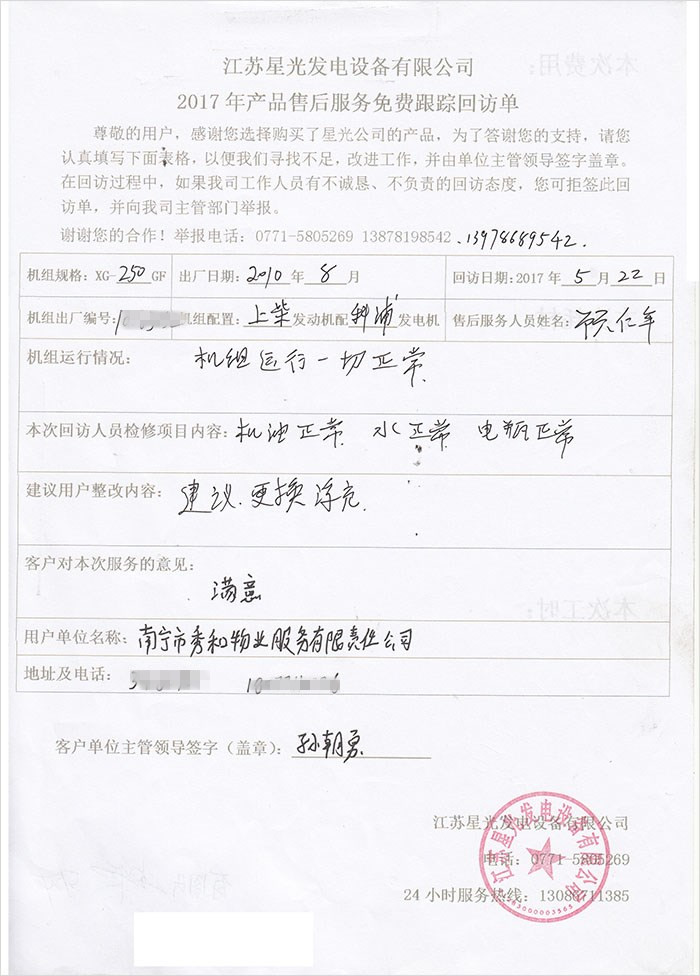 江苏星光发电设备有限公司
2017年产品售后服务免费跟踪回访单
尊敬的用户，感谢您选择购买了星光公司的产品，为了答谢您的支持，请您
认真填写下面表格，以便我们寻找不足，改进工作，并由单位主管领导签字盖章。
在回访过程中，如果我司工作人员有不诚恳、不负责的回访态度，您可拒签此回
访单，并向我司主管部门举报。
谢谢您的合作！举报电话：0771-5805269 13878198542、13978689542.
机组规格：XG-250GF 出厂日期：2010年8月 回访日期：2017年5月22日
机组出厂编号：1 机组配置：上柴发动机配科浦发电机 售后服务人员姓名：仁军
机组运行情况： 机组运行一切正常.
本次回访人员检修项目内容：机油正常. 水正常 电瓶正常
建议用户整改内容： 建议.更换浮充.
客户对本次服务的意见：
满意
用户单位名称：南宁市秀和物业服务有限责任公司
地址及电话：
客户单位主管领导签字（盖章）：孙朝勇
江苏星光发电设备有限公司
电话：0771-5805269
24小时服务热线：13086711385
江苏星光发电设备有限公司
本次费用：
本次工时：